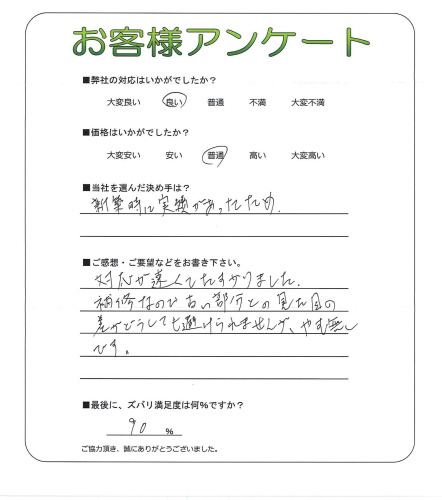 お客様アンケート
■弊社の対応はいかがでしたか？
大変良い 良い 普通 不満 大変不満
■価格はいかがでしたか？
大変安い 安い 普通 高い 大変高い
■当社を選んだ決め手は？
新築時に実績があったため.
■ご感想・ご要望などをお書き下さい。
対応が速くてたすかりました.
補修なので古い部分との見た目の
差がどうしても避けられませんが、やむ無し
です。
■最後に、ズバリ満足度は何%ですか？
90 %
ご協力頂き、誠にありがとうございました。